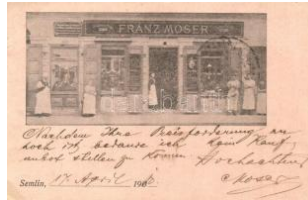 FRANZ MOSER
Nachdem Ihre Preisforderung zu
hoch ist, bedaure ich kein Kauf
anbot stellen zu können. Hochachtend
Semlin, 17. April 190 Moser